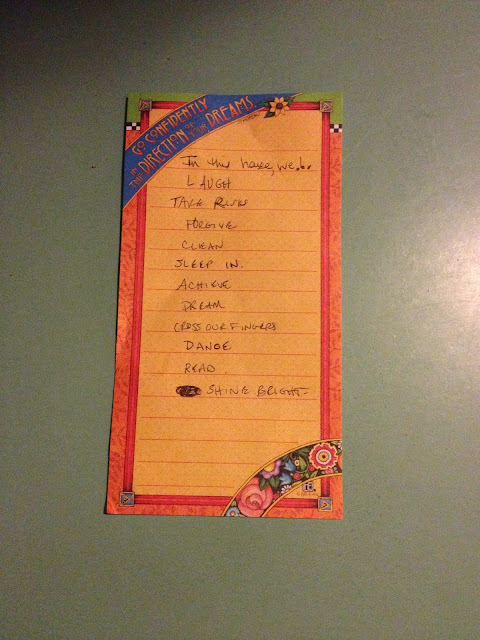 GO CONFIDENTLY
IN THE DIRECTION OF YOUR DREAMS
In this house, we...
LAUGH
TAKE RISKS
FORGIVE
CLEAN
SLEEP IN.
ACHIEVE
DREAM
CROSS OUR FINGERS
DANCE
READ.
SHINE BRIGHT-